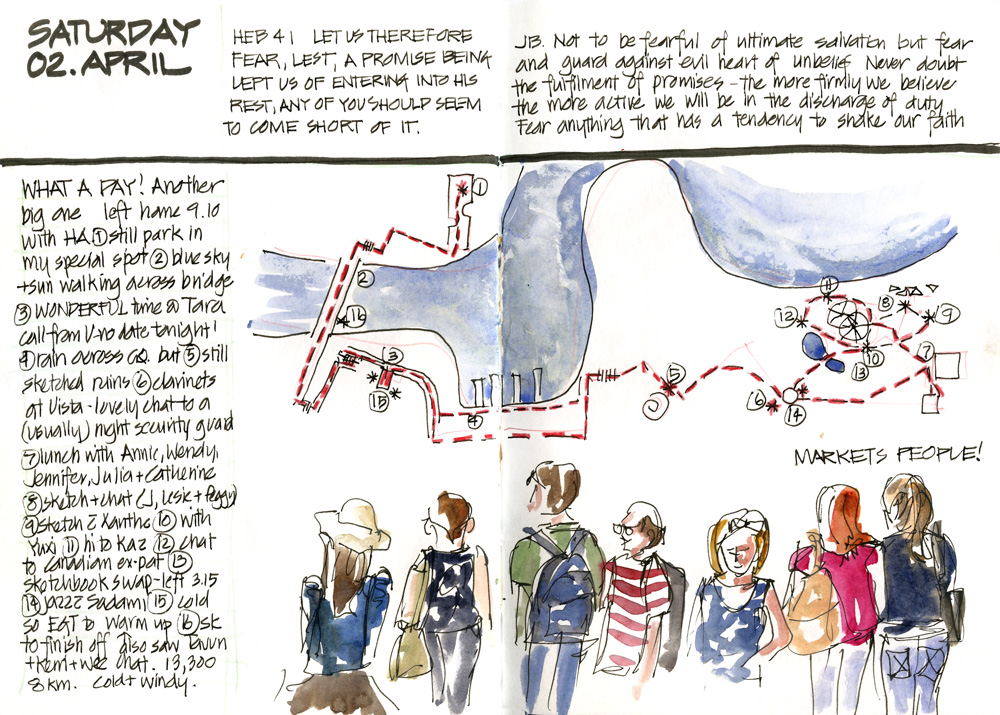 SATURDAY
02. APRIL
HEB 4 1 LET US THEREFORE
FEAR, LEST, A PROMISE BEING
LEFT US OF ENTERING INTO HIS
REST, ANY OF YOU SHOULD SEEM
TO COME SHORT OF IT.
JB. Not to be fearful of ultimate salvation but fear
and guard against evil heart of unbelief Never doubt
the fulfilment of promises - the more firmly we believe
the more active we will be in the discharge of duty
Fear anything that has a tendency to shake our faith
WHAT A DAY! Another
big one left home 9.10
with HA ① still park in
my special spot ② blue sky
+ sun walking across bridge
③ WONDERFUL time @ Tara
call from U-no date tonight!
④ rain across CQ. but ⑤ still
sketched ruins ⑥ clarinets
at Vista - lovely chat to a
(usually) night security guard
⑦ lunch with Annie, Wendy,
Jennifer, Julia + Catherine
⑧ sketch + chat (J, Lesie + Peggy)
⑨ sketch c Xanthe ⑩ with
Yuxi ⑪ hi to Kaz ⑫ chat
to Canadian ex-pat ⑬
sketchbook swap - left 3.15
⑭ jazzz Sadami ⑮ cold
so EGT to warm up ⑯ sk
to finish off also saw
+ Kent + wee chat. 13,300
8km. cold + windy.
①
②
16
③
15
④
⑤
⑥
14
⑦
⑧
⑨
10
11
12
13
MARKETS PEOPLE!